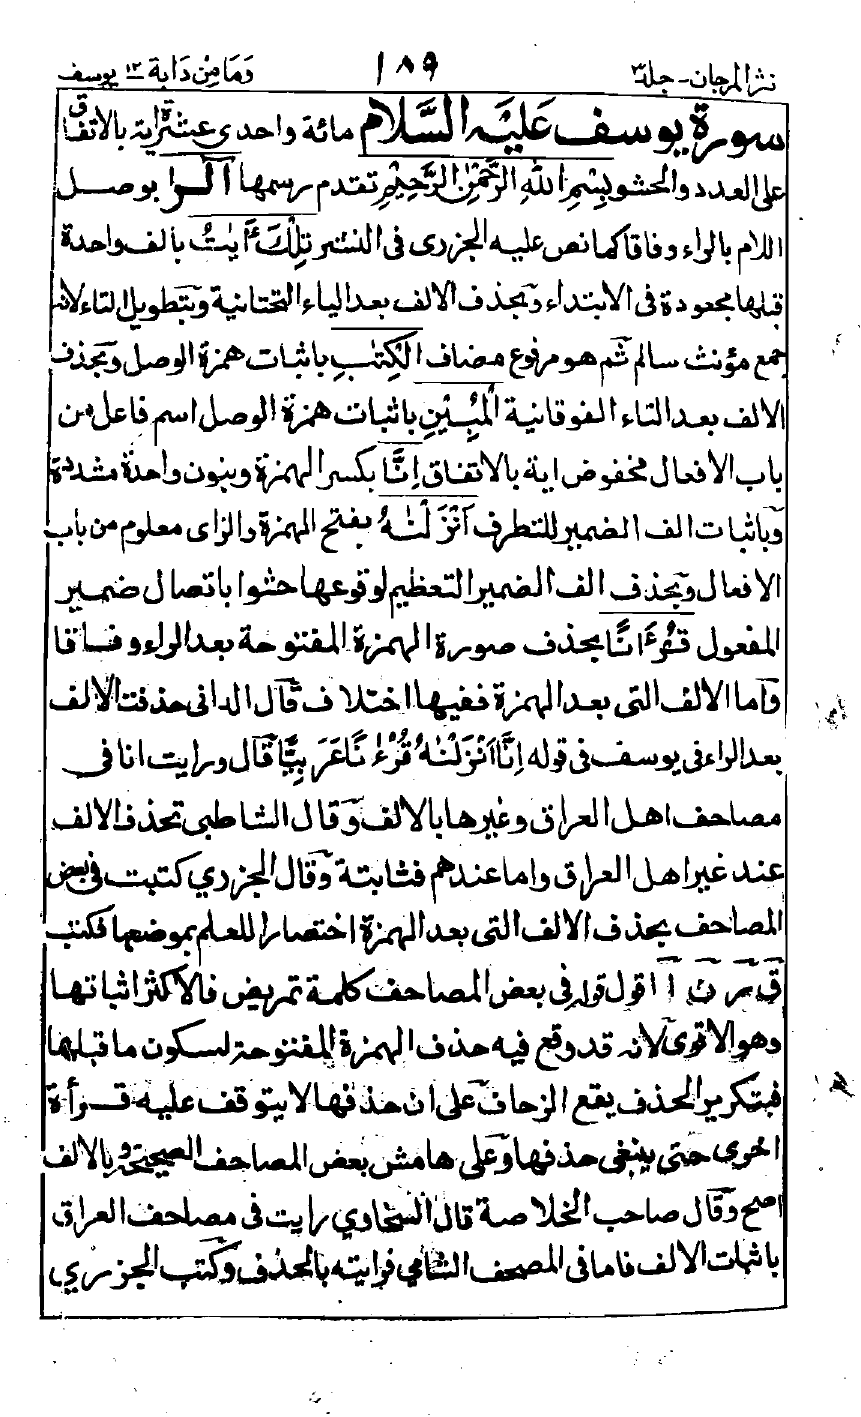 نثر المرجان - جلد ٣ ١٨٩ وَمَا مِنْ دَابة ١٢ يوسف
سورة يوسف عَلَيْهِ السَّلام مائة واحدى عشرة اية بالاتفاق
على العدد والحشو بِسْمِ اللهِ الرَّحْمٰنِ الرَّحِيْمِ تقدم رسمها آلرا بوصل
اللام بالراء وفاقا كما نص عليه الجزرى فى النشر تِلْكَ ءَايٰتُ بالف واحدة
قبلها مجعودة فى الابتداء وَبحذف الالف بعد الياء التحتانية وبتطويل التاء لانه
جمع مؤنث سالم ثم هو مرفوع مضاف الْكِتٰبِ باثبات همزة الوصل وَبحذف
الالف بعد التاء الفوقانية الْمُبِيْنِ باثبات همزة الوصل اسم فاعل من
باب الافعال مخفوض اية بالاتفاق اِنَّا بكسر الهمزة وبنون واحدة مشددة
وَباثبات الف الضمير للتطرف اَنْزَلْنٰهُ بفتح الهمزة والزاى معلوم من باب
الافعال وَبحذف الف الضمير التعظيم لوقوعها حشوا باتصال ضمير
المفعول قُرْءَانًا بحذف صورة الهمزة المفتوحة بعد الراء وفاقا
وَاما الالف التى بعد الهمزة ففيها اختلاف قَال الدانى حذفت الالف
بعد الراء فى يوسف فى قوله اِنَّا اَنْزَلْنٰهُ قُرْءٰنًا عَرَبِيًّا قَال ورايت انا فى
مصاحف اهل العراق وغيرها بالالف وَقال الشاطبى تحذف الالف
عند غير اهل العراق واما عندهم فثابتة وَقال الجزري كتبت فى بعض
المصاحف بحذف الالف التى بعد الهمزة اختصارا للعلم بموضعها فكتب
ق ر ن ا اقول قوله فى بعض المصاحف كلمة تمريض فالاكثر اثباتها
وهو الاقوى لانه قد وقع فيه حذف الهمزة المفتوحة لسكون ما قبلها
فبتكرير الحذف يقع الزحاف على ان حذفها لا يتوقف عليه قرأة
اخرى حتى ينبغى حذفها وَعلى هامش بعض المصاحف الصحيحة وبالالف
اصح وَقال صاحب الخلاصة قال السخاوي رايت فى مصاحف العراق
باثبات الالف فاما فى المصحف الشامي فرايته بالحذف وكتب الجزري